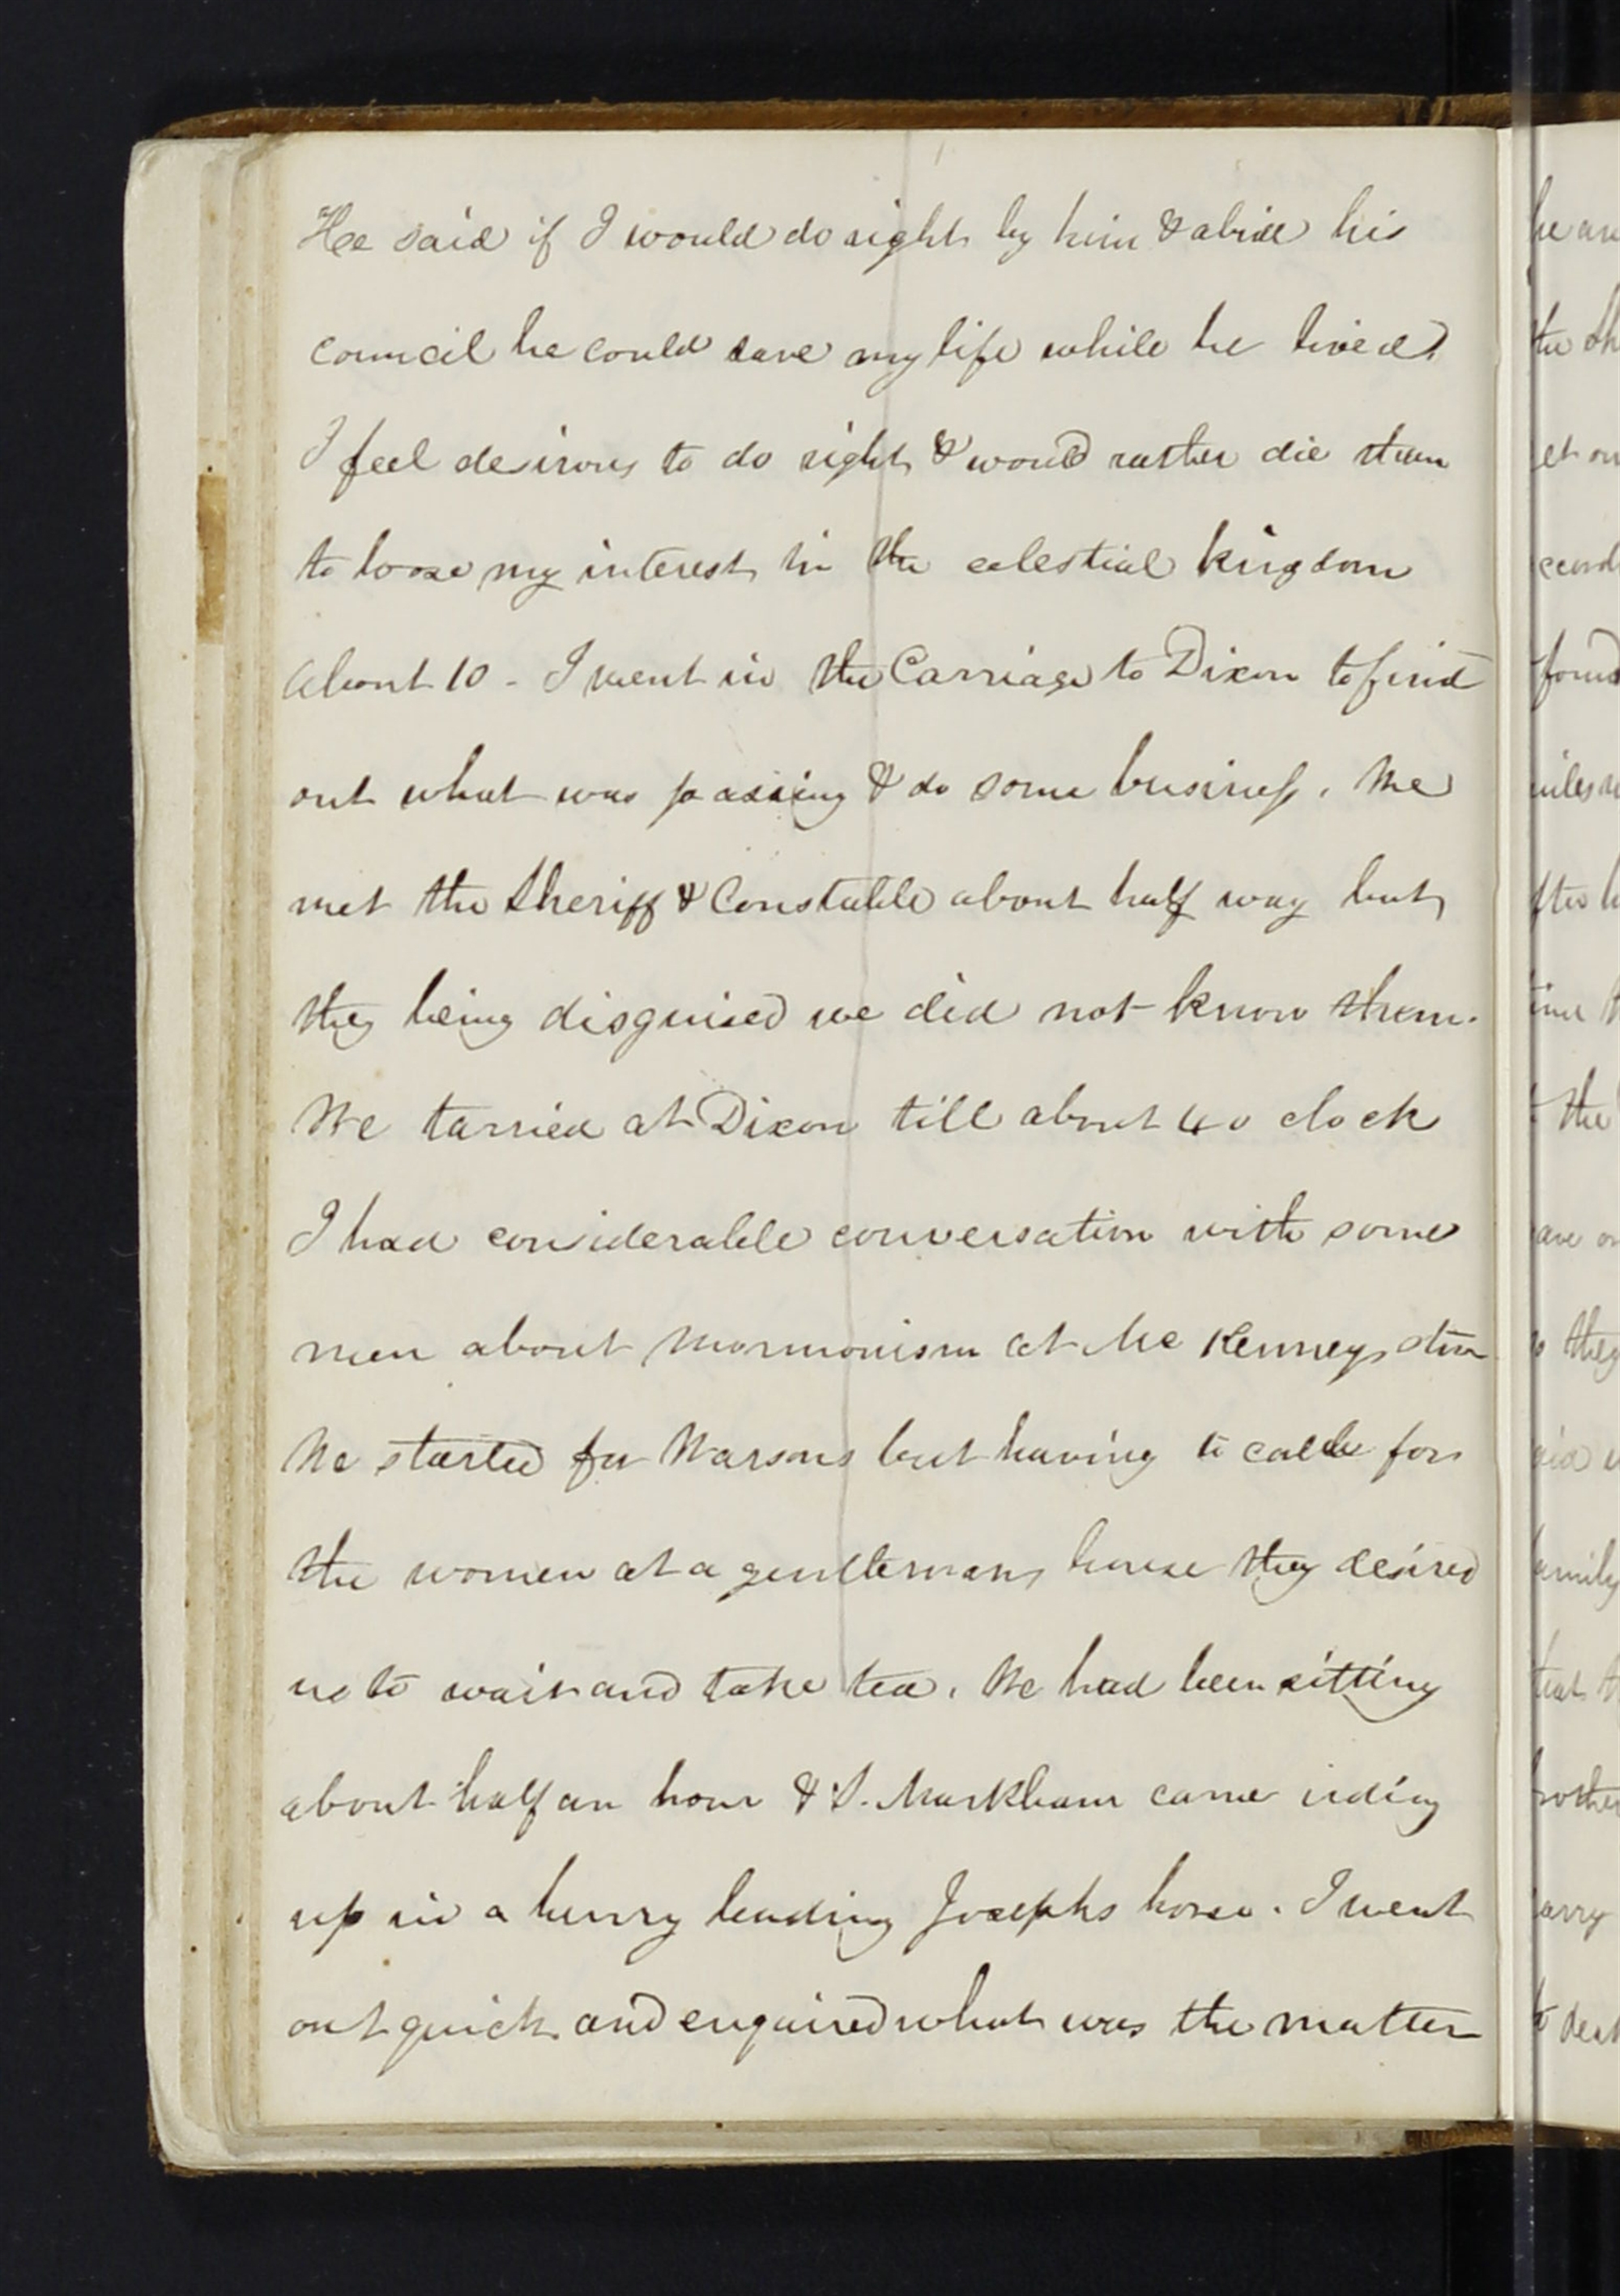 He said if I would do right by him & abide his
council he could save my life while he lived.
I feel desirous to do right & would rather die than
to loose my interest in the celestial kingdom
About 10 - I went in the Carriage to Dixon to find
out what was passing & do some business. We
met the Sheriff & Constable about half way but
they being disguised we did not know them.
We tarried at Dixon till about 4 o clock
I had considerable conversation with some
men about mormonism at Mc Kenneys store
We started for Wassons but having to call for
the women at a gentlemans house they desired
us to wait and take tea. We had been sitting
about half an hour & S. Markham came riding
up in a hurry leading Josephs horse. I went
out quick and enquired what was the matter